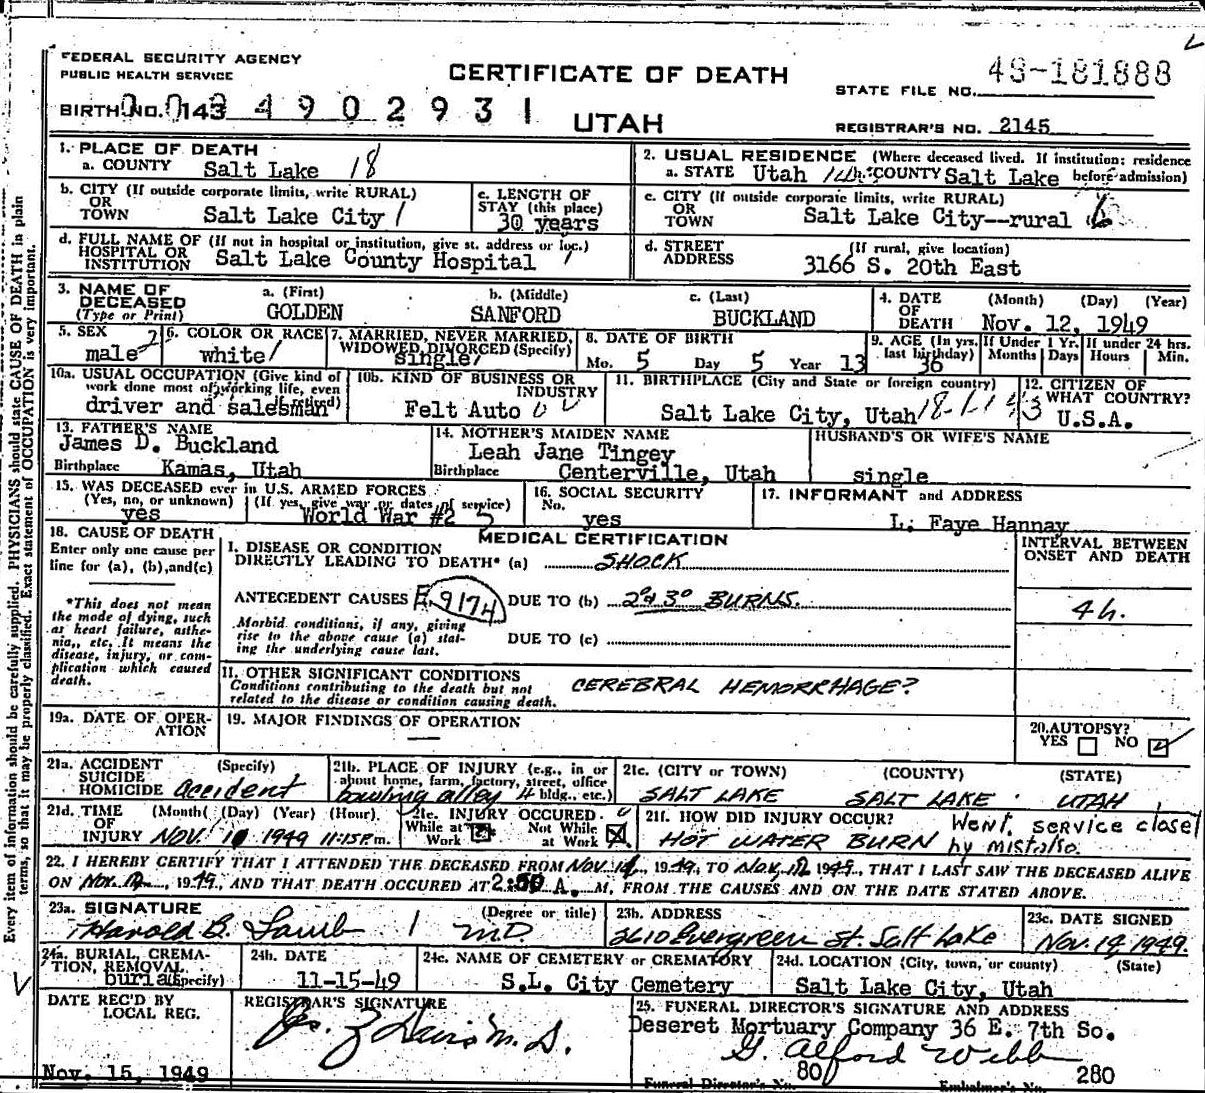 FEDERAL SECURITY AGENCY
PUBLIC HEALTH SERVICE
CERTIFICATE OF DEATH
UTAH
STATE FILE NO. 49-181888
BIRTH NO. 143 4902931
REGISTRAR'S NO. 2145
1. PLACE OF DEATH
a. COUNTY Salt Lake 18
2. USUAL RESIDENCE (Where deceased lived. If institution: residence before admission)
a. STATE Utah COUNTY Salt Lake
b. CITY (If outside corporate limits, write RURAL)
OR
TOWN Salt Lake City 1
c. LENGTH OF
STAY (this place)
30 years
c. CITY (If outside corporate limits, write RURAL)
OR
TOWN Salt Lake City--rural 6
d. FULL NAME OF (If not in hospital or institution, give st. address or loc.)
HOSPITAL OR
INSTITUTION Salt Lake County Hospital
d. STREET
ADDRESS
(If rural, give location)
3166 S. 20th East
3. NAME OF
DECEASED
(Type or Print)
a. (First)
GOLDEN
b. (Middle)
SANFORD
c. (Last)
BUCKLAND
4. DATE
OF
DEATH
(Month) (Day) (Year)
Nov. 12, 1949
5. SEX
male
6. COLOR OR RACE
white
7. MARRIED, NEVER MARRIED,
WIDOWED, DIVORCED (Specify)
single
8. DATE OF BIRTH
Mo. 5 Day 5 Year 13
9. AGE (In yrs.
last birthday)
36
If Under 1 Yr.
Months Days
If under 24 hrs.
Hours Min.
10a. USUAL OCCUPATION (Give kind of
work done most of working life, even
if retired)
driver and salesman
10b. KIND OF BUSINESS OR
INDUSTRY
Felt Auto
11. BIRTHPLACE (City and State or foreign country)
Salt Lake City, Utah
12. CITIZEN OF
WHAT COUNTRY?
U.S.A.
13. FATHER'S NAME
James D. Buckland
Birthplace Kamas, Utah
14. MOTHER'S MAIDEN NAME
Leah Jane Tingey
Birthplace Centerville, Utah
HUSBAND'S OR WIFE'S NAME
single
15. WAS DECEASED ever in U.S. ARMED FORCES
(Yes, no, or unknown) (If yes, give war or dates of service)
yes World War #2
16. SOCIAL SECURITY
No.
yes
17. INFORMANT and ADDRESS
L. Faye Hannay
18. CAUSE OF DEATH
Enter only one cause per
line for (a), (b), and (c)
*This does not mean
the mode of dying, such
as heart failure, asthe-
nia, etc. It means the
disease, injury, or com-
plication which caused
death.
MEDICAL CERTIFICATION
INTERVAL BETWEEN
ONSET AND DEATH
I. DISEASE OR CONDITION
DIRECTLY LEADING TO DEATH* (a) SHOCK
ANTECEDENT CAUSES E.917 DUE TO (b) 2° & 3° BURNS.
4 h.
Morbid conditions, if any, giving
rise to the above cause (a) stat-
ing the underlying cause last.
DUE TO (c)
II. OTHER SIGNIFICANT CONDITIONS
Conditions contributing to the death but not
related to the disease or condition causing death.
CEREBRAL HEMORRHAGE?
19a. DATE OF OPER-
ATION
19. MAJOR FINDINGS OF OPERATION
20. AUTOPSY?
YES NO
21a. ACCIDENT
SUICIDE
HOMICIDE
(Specify)
accident
21b. PLACE OF INJURY (e.g., in or
about home, farm, factory, street, office
bldg., etc.)
bowling alley
21c. (CITY or TOWN) (COUNTY) (STATE)
SALT LAKE SALT LAKE UTAH
21d. TIME
OF
INJURY
(Month) (Day) (Year) (Hour)
NOV. 1949 11:15 P.m.
21e. INJURY OCCURED
While at
Work
Not While
at Work
21f. HOW DID INJURY OCCUR?
HOT WATER BURN
Went service closet
by mistake.
22. I HEREBY CERTIFY THAT I ATTENDED THE DECEASED FROM NOV. 1949, TO NOV. 12 1949, THAT I LAST SAW THE DECEASED ALIVE
ON NOV. 12, 1949, AND THAT DEATH OCCURED AT A. M, FROM THE CAUSES AND ON THE DATE STATED ABOVE.
23a. SIGNATURE
Harold B. Lamb
(Degree or title)
M.D.
23b. ADDRESS
2610 Evergreen St. Salt Lake
23c. DATE SIGNED
Nov. 14, 1949.
24a. BURIAL, CREMA-
TION, REMOVAL
(Specify)
burial
24b. DATE
11-15-49
24c. NAME OF CEMETERY or CREMATORY
S.L. City Cemetery
24d. LOCATION (City, town, or county) (State)
Salt Lake City, Utah
DATE REC'D BY
LOCAL REG.
Nov. 15, 1949
REGISTRAR'S SIGNATURE
25. FUNERAL DIRECTOR'S SIGNATURE AND ADDRESS
Deseret Mortuary Company 36 E. 7th So.
G. Alford Webb
Funeral Director's No. 80
Embalmer's No. 280
Every item of information should be carefully supplied. PHYSICIANS should state CAUSE OF DEATH in plain
terms, so that it may be properly classified. Exact statement of OCCUPATION is very important.